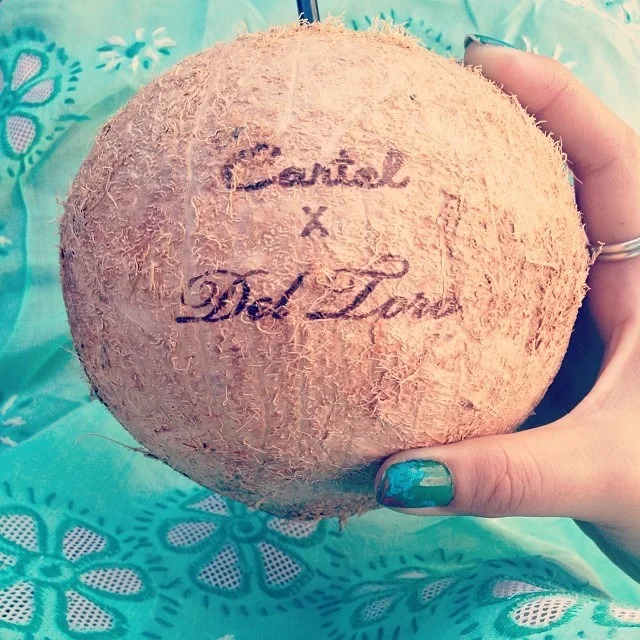 Cartel
X
Del Toro